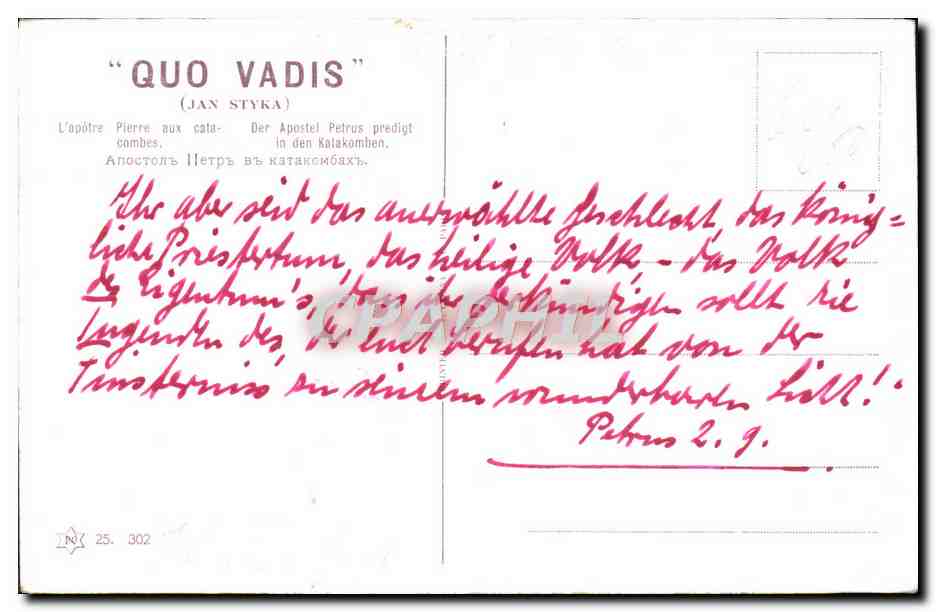 "QUO VADIS"
(JAN STYKA)
L'apôtre Pierre aux cata-
combes.
Der Apostel Petrus predigt
in den Katakomben.
Апостолъ Петръ въ катакомбахъ.
Ihr aber seid das auserwählte Geschlecht, das könig=
liche Priestertum, das heilige Volk, – das Volk
des Eigentum's, dass ihr verkündigen sollt die
Tugenden des, der Euch berufen hat von der
Finsterniss zu seinem wunderbaren Licht!
Petrus 2. 9.
CPAPHIL
N 25. 302